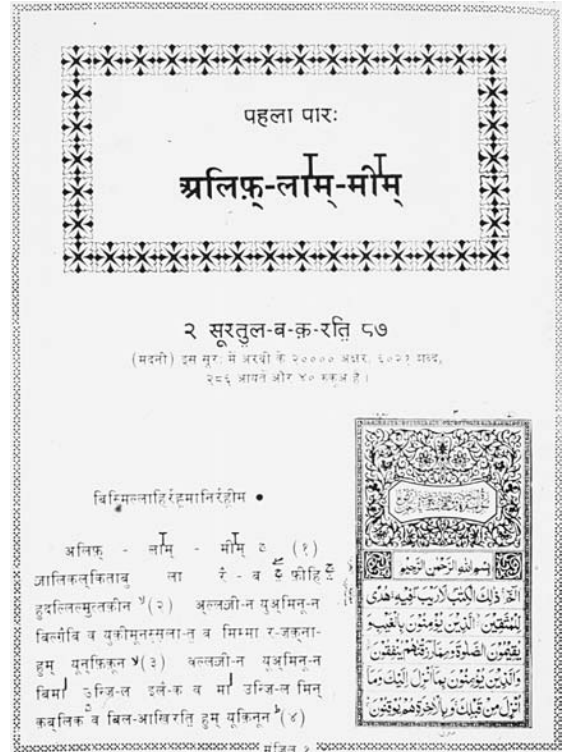 पहला पारः
अलिफ़्-लाम्-मीम्
२ सूरतुल-ब-क़-रति ८७
(मदनी) इस सूरः में अरबी के २०००० अक्षर, ६०२१ शब्द,
२८६ आयतें और ४० रुकूअ हैं।
बिस्मिल्लाहिर्रह्मानिर्रहीम ●
अलिफ़् - लाम् - मीम् (१)
जालिकल्किताबु ला रै - ब फ़ीहि
हुदल्लिल्मुत्तकीन (२) अल्लजी-न युअ्मिनू-न
बिल्गैबि व युकीमूनस्सला-त व मिम्मा र-जक्ना-
हुम् युन्फ़िकून (३) वल्लजी-न युअ्मिनू-न
बिमा उन्जि-ल इलै-क व मा उन्जि-ल मिन्
क़ब्लिक व बिल-आखिरति हुम् यूक़िनून (४)
بِسْمِ اللهِ الرَّحْمٰنِ الرَّحِيْمِ
الٓمّٓ ذٰلِكَ الْكِتٰبُ لَا رَيْبَ فِيْهِ هُدًى
لِّلْمُتَّقِيْنَ الَّذِيْنَ يُؤْمِنُوْنَ بِالْغَيْبِ وَ
يُقِيْمُوْنَ الصَّلٰوةَ وَمِمَّا رَزَقْنٰهُمْ يُنْفِقُوْنَ
وَالَّذِيْنَ يُؤْمِنُوْنَ بِمَآ اُنْزِلَ اِلَيْكَ وَمَآ
اُنْزِلَ مِنْ قَبْلِكَ وَبِالْاٰخِرَةِ هُمْ يُوْقِنُوْنَ
मंज़िल १